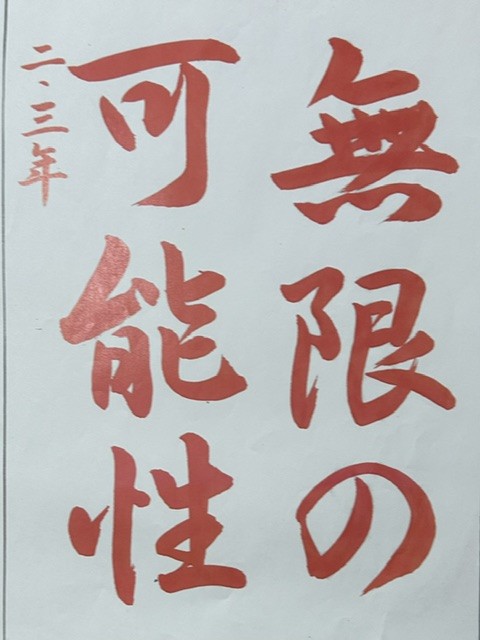 無限の
可能性
二・三年